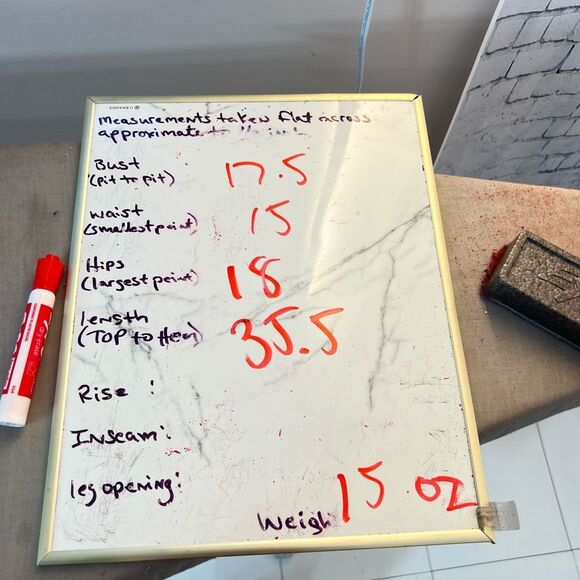 U BRANDS
measurements taken flat across
approximate to
Bust 17.5
(pit to pit)
waist 15
(smallest point)
Hips 18
(largest point)
length 35.5
(TOP to Hem)
Rise :
Inseam:
leg opening:
Weigh 15 oz